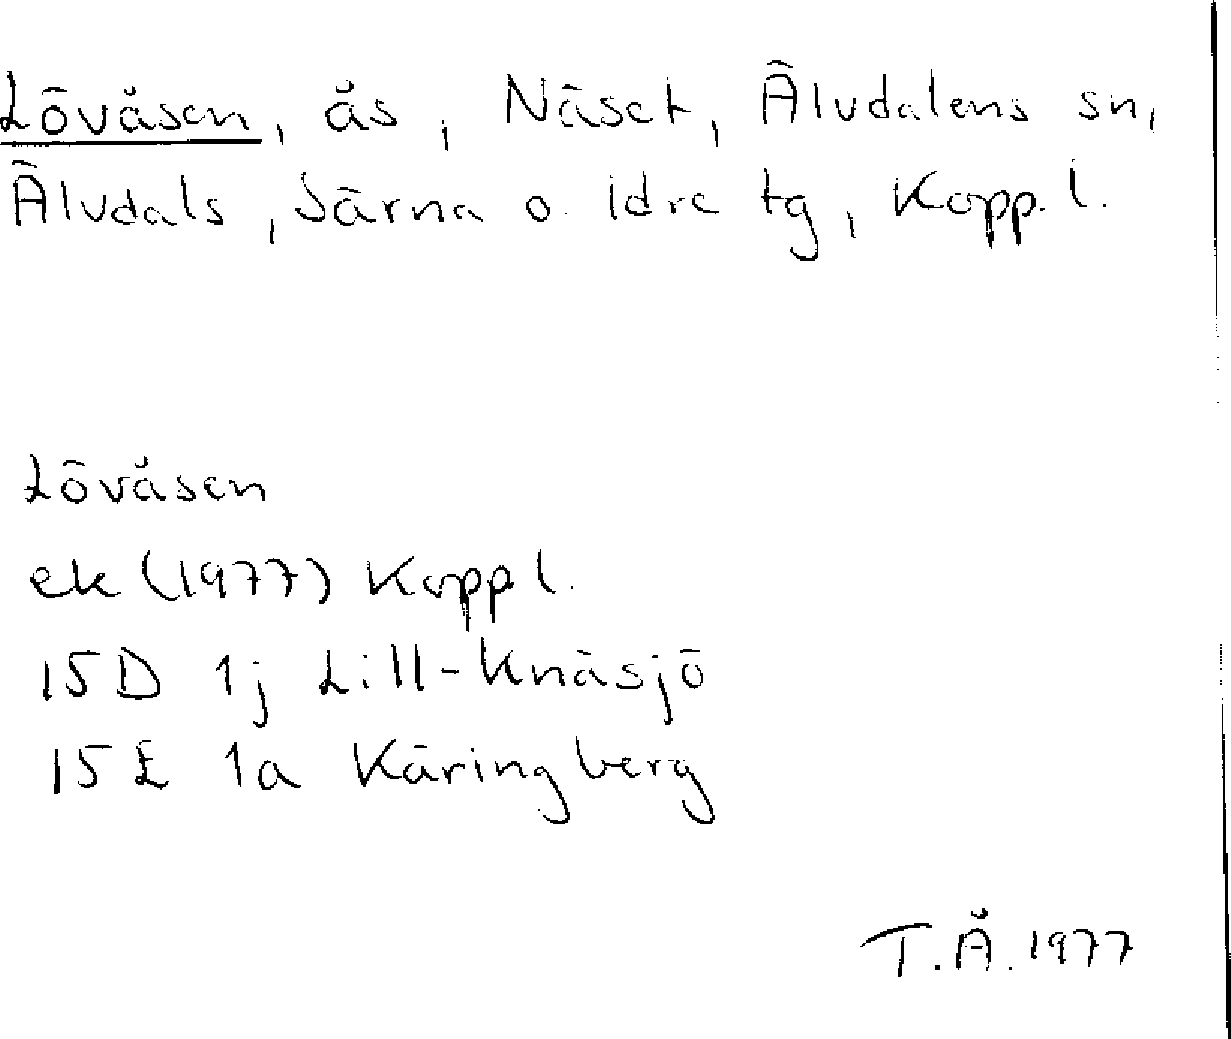 Lövåsen, ås, Näset, Älvdalens sn,
Älvdals, Särna o. Idre tg, Kopp. l.
Lövåsen
ek (1977) Kopp l.
15D 1j Lill-Knäsjö
15E 1a Käringberg
T.Å. 1977